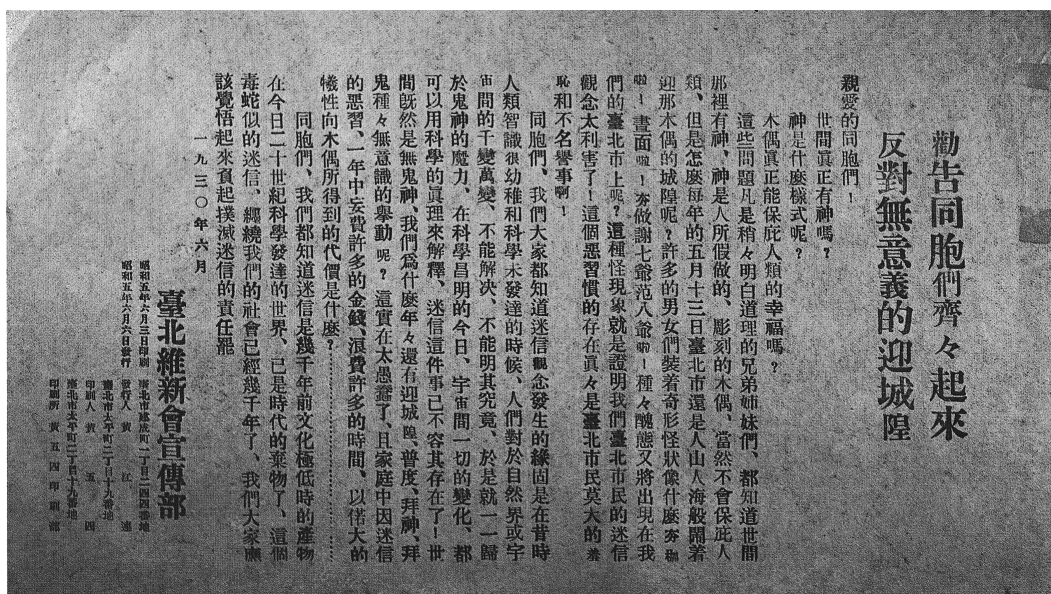 勸告同胞們齊々起來
反對無意義的迎城隍
親愛的同胞們！
世間眞正有神嗎？
神是什麼樣式呢？
木偶眞正能保庇人類的幸福嗎？
這些問題凡是稍々明白道理的兄弟姉妹們、都知道世間
那裡有神、神是人所假做的、彫刻的木偶、當然不會保庇人
類、但是怎麼每年的五月十三日臺北市還是人山人海般鬧着
迎那木偶的城隍呢？許多的男女們裝着奇形怪狀像什麼夯枷
啦！書面啦！夯做謝七爺范八爺啦！種々醜態又將出現在我
們的臺北市上呢？這種怪現象就是證明我們臺北市民的迷信
觀念太利害了！這個惡習慣的存在眞々是臺北市民莫大的羞
恥和不名譽事啊！
同胞們、我們大家都知道迷信觀念發生的緣固是在昔時
人類智識很幼稚和科學未發達的時候、人們對於自然界或宇
宙間的千變萬變、不能解决、不能明其究竟、於是就一一歸
於鬼神的魔力、在科學昌明的今日、宇宙間一切的變化、都
可以用科學的眞理來解釋、迷信這件事已不容其存在了！世
間旣然是無鬼神、我們爲什麼年々還有迎城隍、普度、拜神、拜
鬼種々無意識的擧動呢？這實在太愚蠢了、且家庭中因迷信
的惡習、一年中妄費許多的金錢、浪費許多的時間、以偌大的
犧性向木偶所得到的代價是什麼？
同胞們、我們都知道迷信是幾千年前文化極低時的產物
在今日二十世紀科學發達的世界、已是時代的棄物了、這個
毒蛇似的迷信、纒繞我們的社會已經幾千年了、我們大家應
該覺悟起來負起撲滅迷信的責任罷
一九三〇年六月
臺北維新會宣傳部
昭和五年六月三日印刷
昭和五年六月六日發行
臺北市建成町一丁目二四四番地
發行人 黃 江 連
臺北市太平町二丁目十九番地
印刷人 黃 五 四
臺北市太平町二丁目十九番地
印刷所 黃五四印刷部